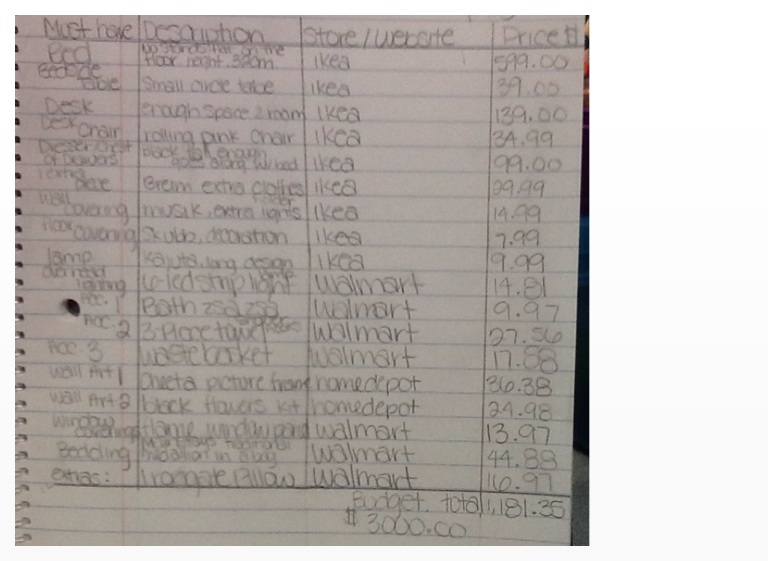 Must have Description Store/Website Price $
Bed floor height. ikea 599.00
Bedside table Small circle table ikea 39.00
Desk enough space 2 room ikea 139.00
Desk Chair rolling pink chair ikea 34.99
Dresser Chest of Drawers ikea 99.00
extra Breim extra clothes ikea 29.99
Wall covering musik, extra lights ikea 14.99
Floor covering Skubb, decoration ikea 7.99
lamp Kajuta, long design ikea 9.99
lighting led strip light Walmart 14.81
Acc. 1 Bath zsa zsa Walmart 9.97
Acc. 2 3-Piece towel Walmart 27.56
Acc 3 wastebasket Walmart 17.88
Wall Art 1 picture frame homedepot 36.38
Wall Art 2 black flavers kit homedepot 24.98
Window covering window Walmart 13.97
Bedding in a bag Walmart 44.88
extras: Pillow Walmart 16.97
Budget total 1,181.35
$ 3000.00